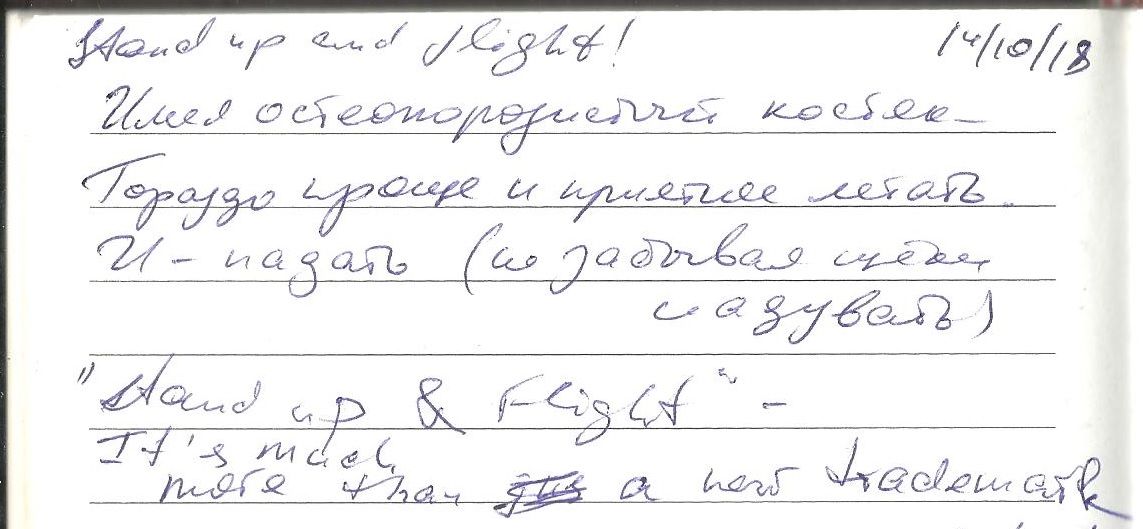 Stand up and flight! 14/10/18
Имея остеопорозистый костяк –
Гораздо проще и приятнее летать.
И – падать (не забывая щёки
надувать)
"Stand up & Flight" –
It's much
more than a new trademark